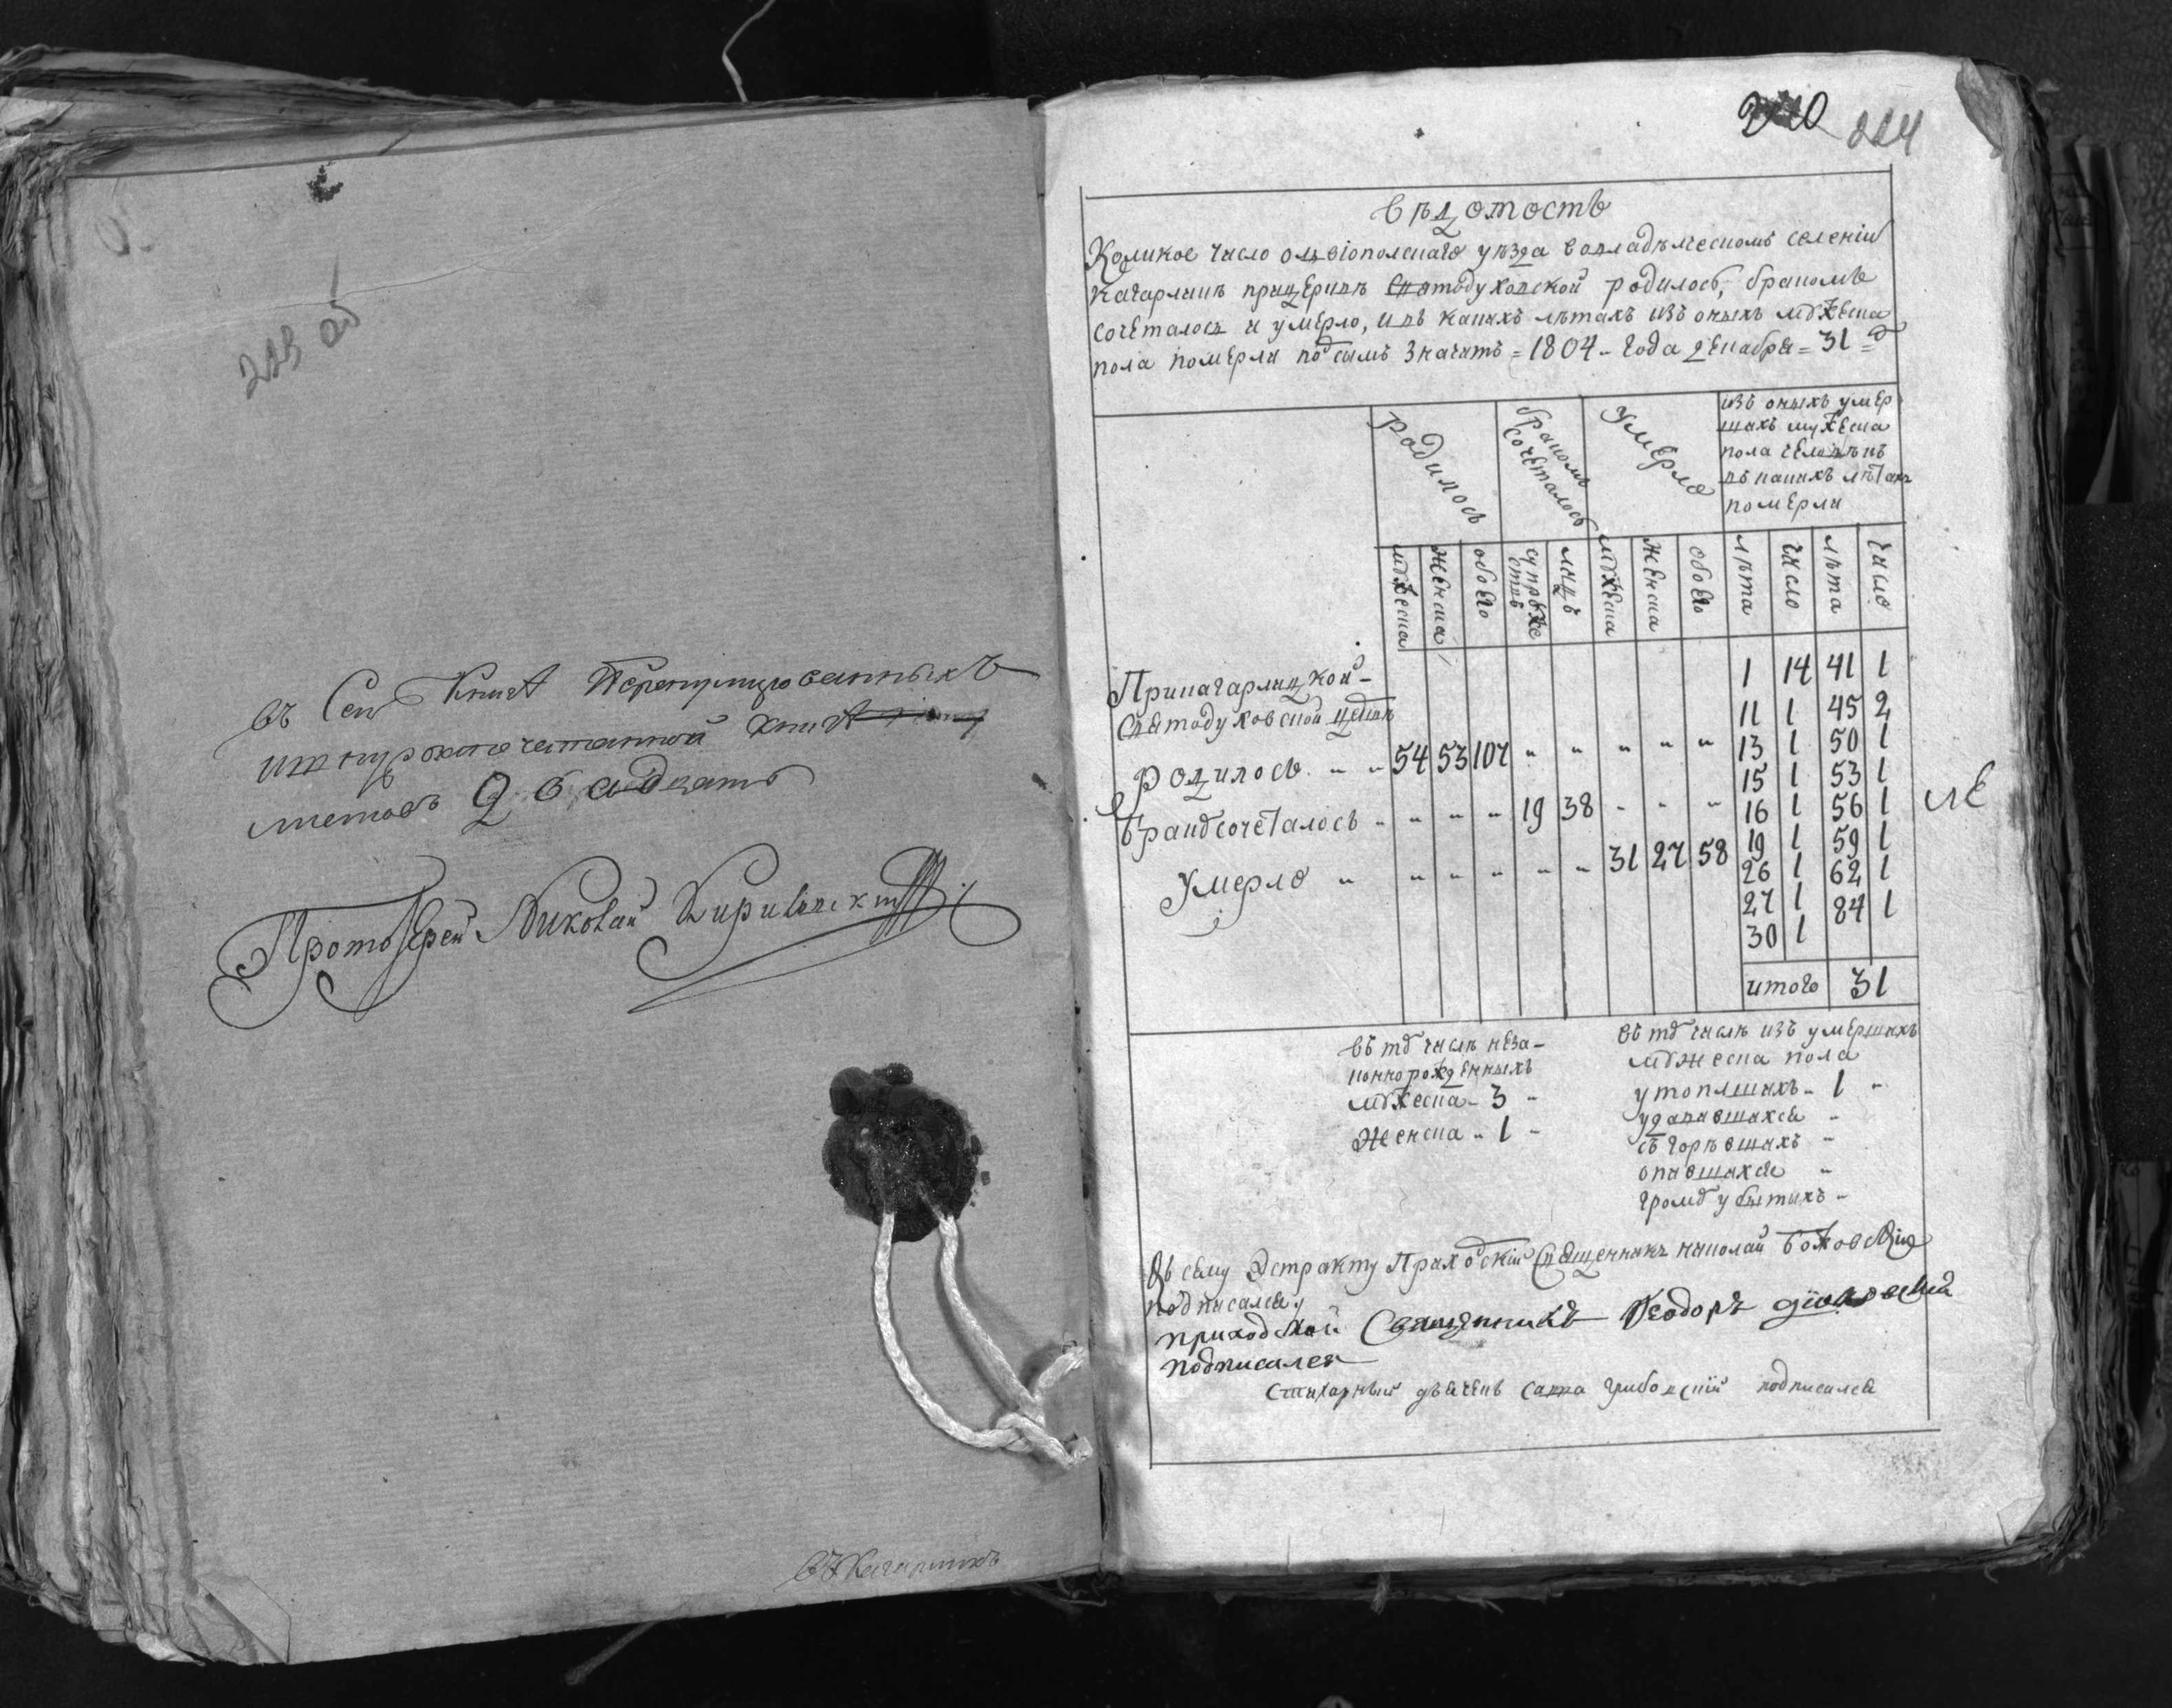 223 об
въ Сей Книгѣ Перенумерованныхъ
и шнурозапечатанной книгѣ
листовъ Двадцать
Протоіерей Николай
въ Кагарлыкѣ
220 224
вѣдомость
Коликое число олвіополскаго уѣзда вовладѣлческомъ селеніи
кагарликѣ прицерквѣ Святодуховской родилось, бракомъ
сочеталось и умерло, и въ какихъ лѣтахъ изъ оныхъ мужеска
пола померли подсимъ значитъ = 1804 - года декабря = 31 = д
родилось
бракомъ сочеталось
умерло
изъ оныхъ умер
шихъ мужеска
пола человѣкъ
въ какихъ лѣтахъ
померли
мужеска
женска
обоего
супружествъ
лицъ
мужеска
женска
обоего
лѣта
число
лѣта
число
Прикагарлицкой -
Святодуховской церквѣ
родилось - - 54 53 107 " " " " "
Бракосочеталось - - - - 19 38 - - -
умерло - - - - - - 31 27 58
1 14 41 1
11 1 45 2
13 1 50 1
15 1 53 1
16 1 56 1
19 1 59 1
26 1 62 1
27 1 84 1
30 1
итого 31
въ тѣ числѣ неза-
коннорожденныхъ
мужеска - 3 -
женска - 1 -
въ тѣ числѣ изъ умершихъ
мужеска пола
утопшихъ - 1 -
удавившихся -
сгорѣвшихъ -
опившихся -
громомъ убитыхъ -
Къ сему Экстракту Приходскій Священникъ николай
подписался
приходской Священникъ Феодоръ
подписался
Стихарный дьячекъ савва грибовскій подписался